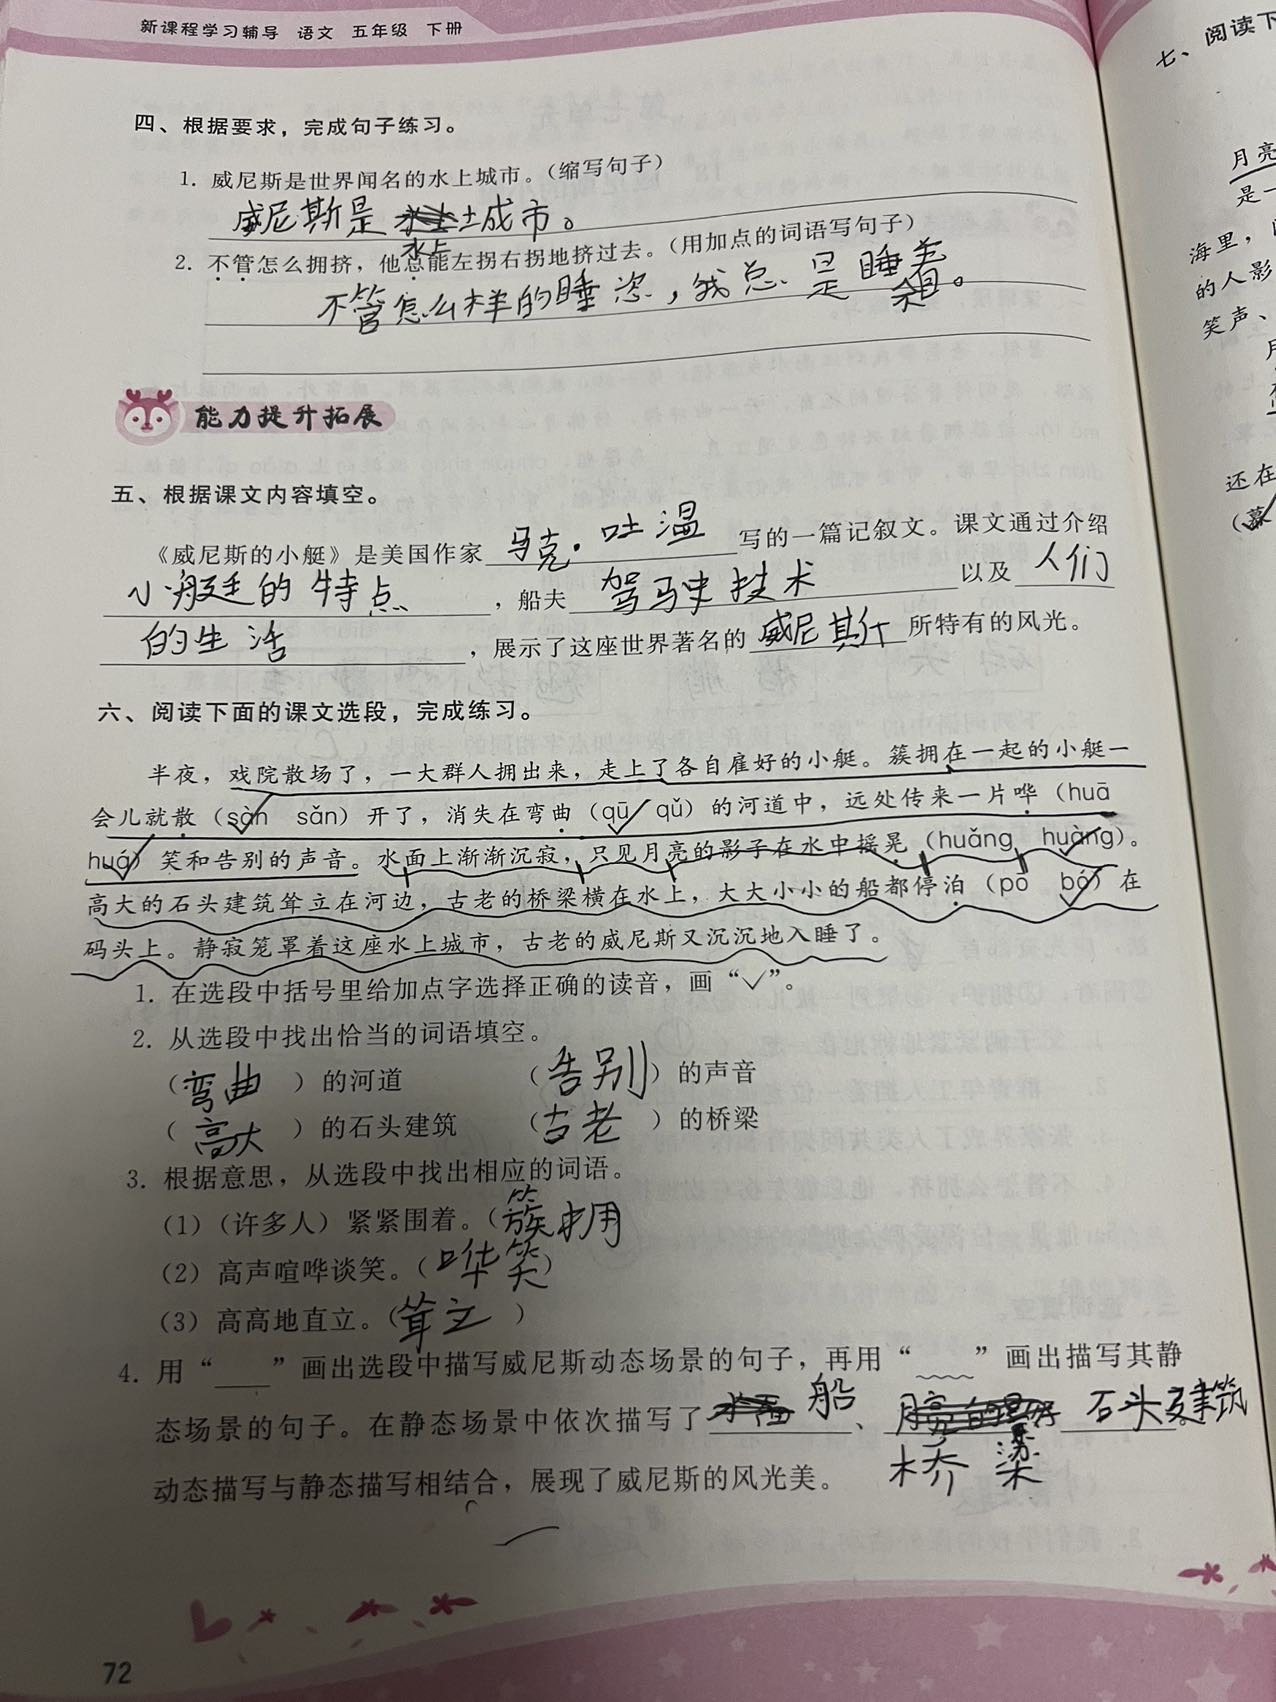 新课程学习辅导 语文 五年级 下册
四、根据要求，完成句子练习。
1. 威尼斯是世界闻名的水上城市。（缩写句子）
威尼斯是水上城市。
2. 不管怎么拥挤，他总能左拐右拐地挤过去。（用加点的词语写句子）
不管怎么样的睡姿，我总是睡着
能力提升拓展
五、根据课文内容填空。
《威尼斯的小艇》是美国作家 马克·吐温 写的一篇记叙文。课文通过介绍
小艇的特点，船夫 驾驶技术 以及 人们
的生活，展示了这座世界著名的 威尼 所特有的风光。
六、阅读下面的课文选段，完成练习。
半夜，戏院散场了，一大群人拥出来，走上了各自雇好的小艇。簇拥在一起的小艇一
会儿就散（sàn sǎn）开了，消失在弯曲（qū qǔ）的河道中，远处传来一片哗（huā
huá）笑和告别的声音。水面上渐渐沉寂，只见月亮的影子在水中摇晃（huǎng huàng）。
高大的石头建筑耸立在河边，古老的桥梁横在水上，大大小小的船都停泊（pō bó）在
码头上。静寂笼罩着这座水上城市，古老的威尼斯又沉沉地入睡了。
1. 在选段中括号里给加点字选择正确的读音，画“✓”。
2. 从选段中找出恰当的词语填空。
（弯曲）的河道 （告别）的声音
（高大）的石头建筑 （古老）的桥梁
3. 根据意思，从选段中找出相应的词语。
（1）（许多人）紧紧围着。（簇拥
（2）高声喧哗谈笑。（哗笑）
（3）高高地直立。（耸立）
4. 用“___”画出选段中描写威尼斯动态场景的句子，再用“﹏﹏”画出描写其静
态场景的句子。在静态场景中依次描写了 船、桥梁 石头建筑。
动态描写与静态描写相结合，展现了威尼斯的风光美。
72
七、阅读下
月亮
是一
海里，
的人影
笑声、
还在